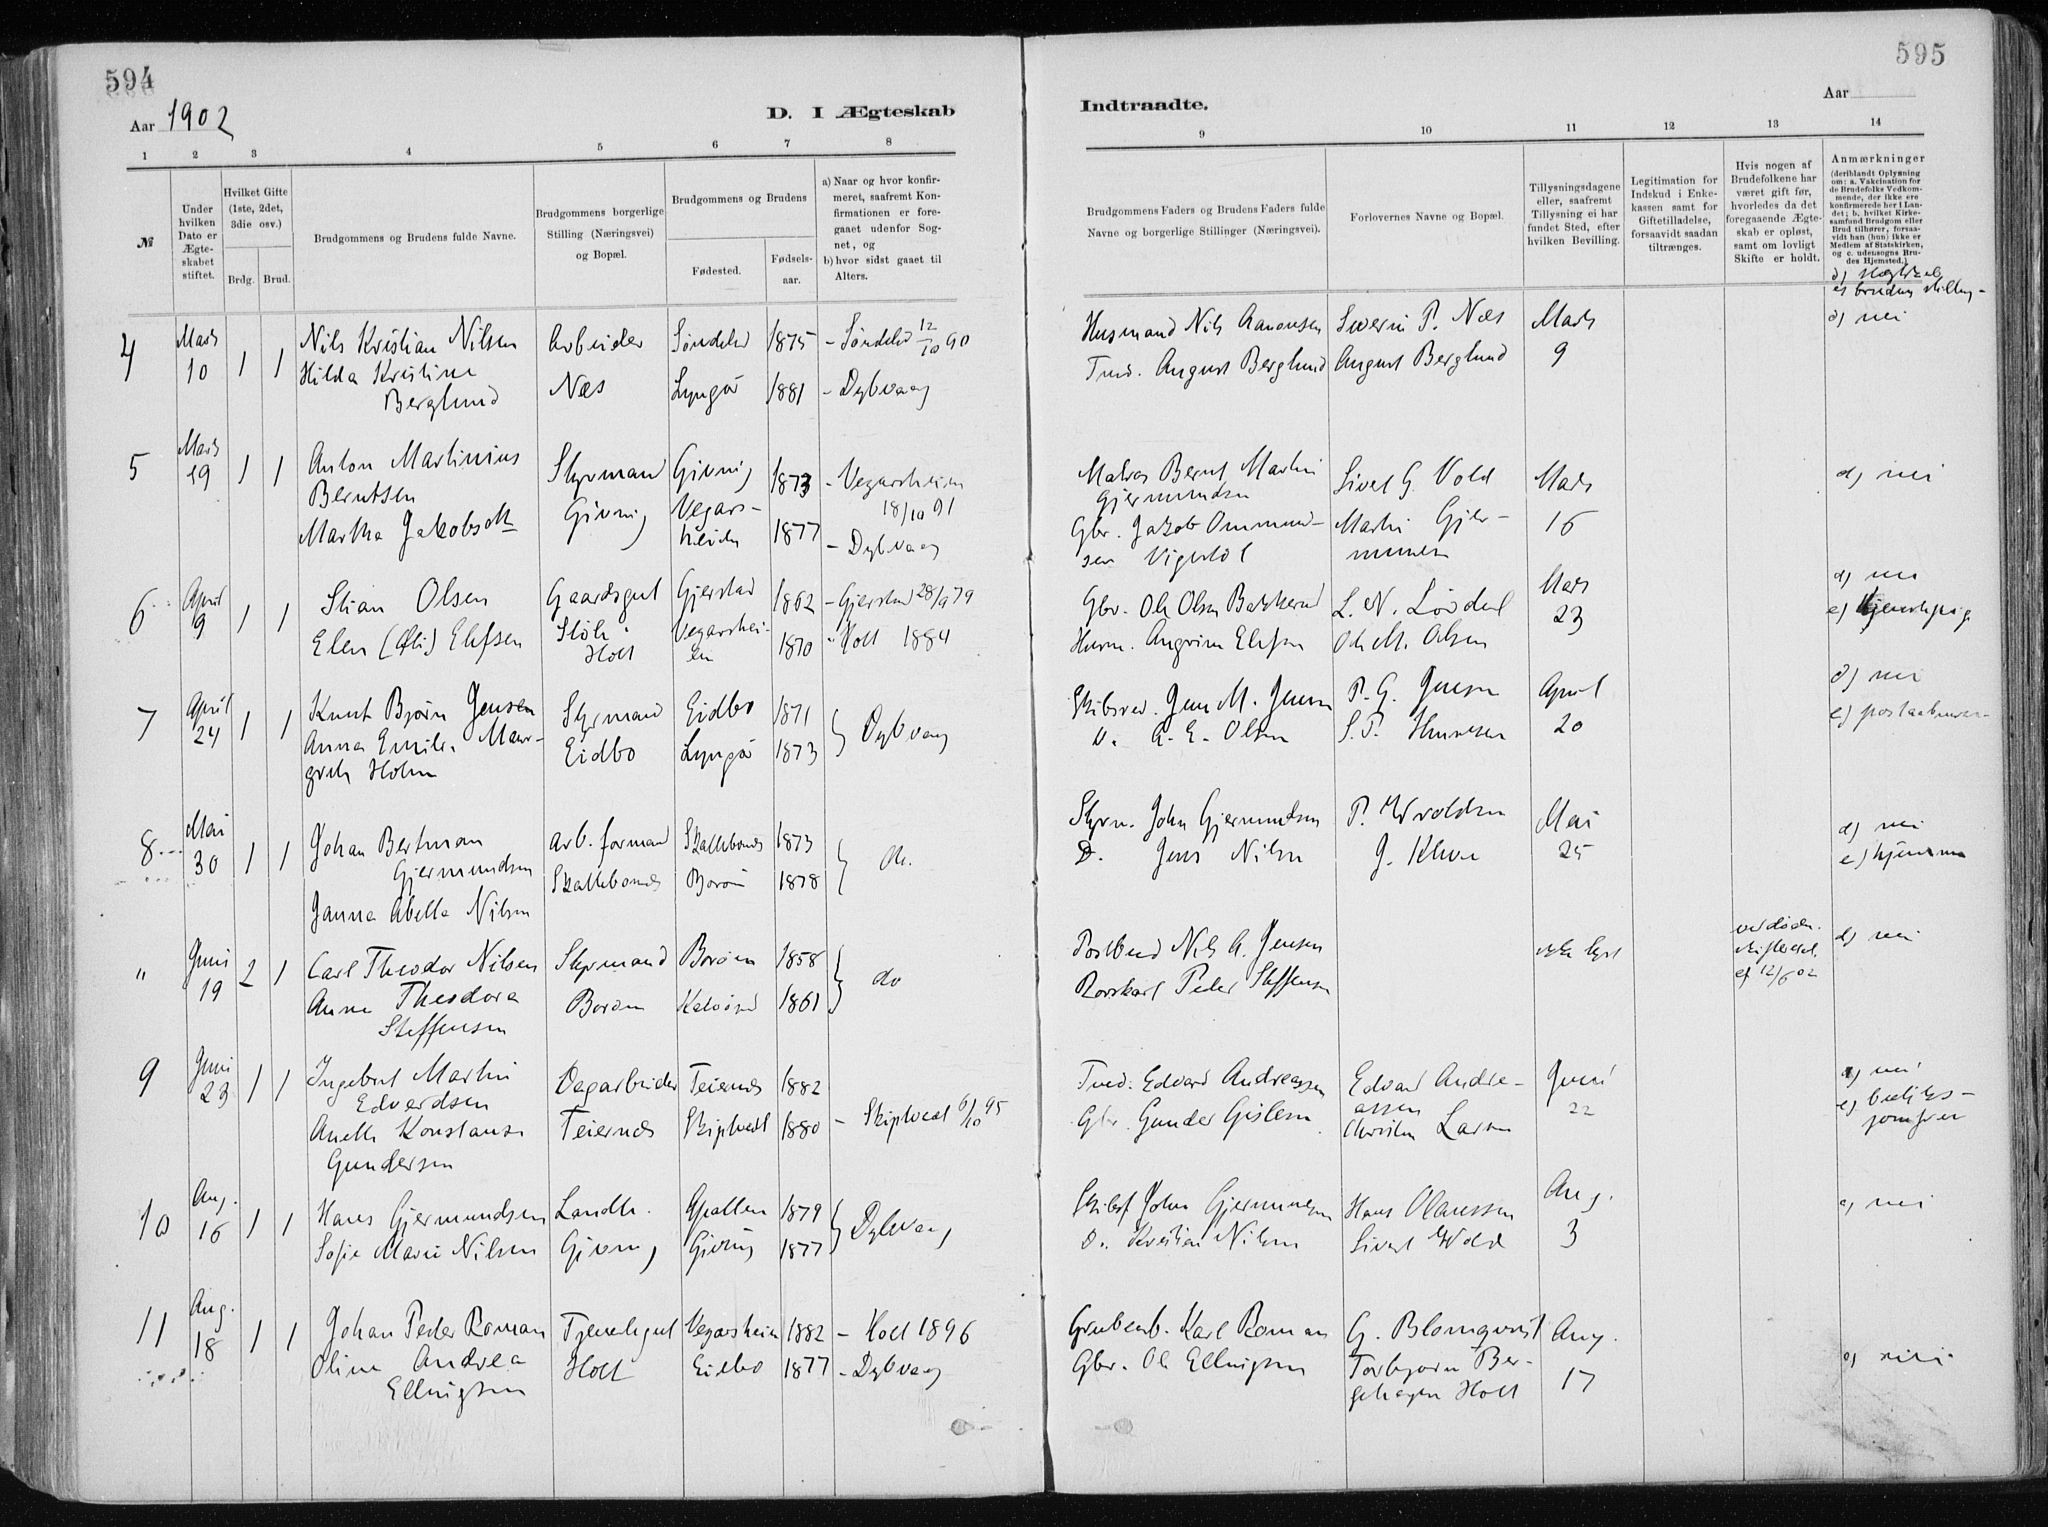 594
595
Aar 1902
D. I Ægteskab
Indtraadte.
Aar
1 2 3 4 5 6 7 8 9 10 11 12 13 14
№
Under hvilken Dato er Ægteskabet stiftet.
Hvilket Gifte (1ste, 2det, 3die osv.)
Brdg. Brud.
Brudgommens og Brudens fulde Navne.
Brudgommens borgerlige Stilling (Næringsvei) og Bopæl.
Brudgommens og Brudens
Fødested.
Fødselsaar.
a) Naar og hvor konfirmeret, saafremt Konfirmationen er foregaaet udenfor Sognet, og
b) hvor sidst gaaet til Alters.
Brudgommens Faders og Brudens Faders fulde Navne og borgerlige Stillinger (Næringsvei).
Forlovernes Navne og Bopæl.
Tillysningsdagene eller, saafremt Tillysning ei har fundet Sted, efter hvilken Bevilling.
Legitimation for Indskud i Enkekassen samt for Giftetilladelse, forsaavidt saadan tiltrænges.
Hvis nogen af Brudefolkene har været gift før, hvorledes da det foregaaende Ægteskab er opløst, samt om lovligt Skifte er holdt.
Anmærkninger
(deriblandt Oplysning om: a. Vakcination for de Brudefolks Vedkommende, der ikke ere konfirmerede her i Landet; b. hvilket Kirkesamfund Brudgom eller Brud tilhører, forsaavidt han (hun) ikke er Medlem af Statskirken, og c. udensogns Brudes Hjemsted.)
4 Mars 10 1 1
Nils Kristian Nilsen Arbeider Søndeled 1875 – Søndeled 12/10 90
Hilda Kristine Berglund Næs Lyngør 1881 – Dybvaag
Husmand Nils Aanonsen Severin P. Næs Mars
August Berglund August Berglund 9
d) nei
5 Mars 19 1 1
Anton Martinius Berntsen Styrmand Givning 1873 – Vegarsheien 18/10 91
Martha Jakobsdt Givning Vegarsheien 1877 – Dybvaag
Matros Bernt Martin Gjermundsen Sivert G. Vold Mars
Gbr. Jakob Ommundsen Martin Gjermundsen 16
d) nei
6 April 9 1 1
Stian Olsen Gaardsgut Gjerstad 1862 – Gjerstad 28/9 79
Elen (Eli) Elefsen Holt Vegarsheien 1870 " Holt 1884
Gbr. Ole Olsen Mars
Husm. Angrim Elefsen Ole M. Olsen 23
d) nei
7 April 24 1 1
Knut Bjørn Jensen Styrmand Eidbo 1871
Anna Emilie Margrethe Holm Eidbo Lyngør 1873 Dybvaag
Skibsred. Jens M. Jensen P. G. Jensen April
D. A. E. Olsen 20
d) nei
8 Mai 30 1 1
Johan Bertman Gjermundsen arb. formand Skallebonæs 1873
Janna Abella Nilsen Skallebonæs Borøi 1878 do.
Styrm. John Gjermundsen Mai
D. Jens Nilsen 25
d) nei
" Juni 19 2 1
Carl Theodor Nilsen Styrmand Borøen 1858
Anne Theodora Steffensen Borøen 1861 do
Postbud Nils A. Jensen ikke lyst
Peder Steffensen
12/6 02
d) nei
9 Juni 23 1 1
Ingebert Martin Edverdsen Dagarbeider Teienæs 1882
Anette Konstanse Gundersen Teiernæs Skiptvedt 1880 – Skiptvedt 6/10 95
Edvard Andreassen Edvard Andreassen Juni
Gbr. Gunder Gislesen Christen Larsen 22
d) nei
10 Aug. 16 1 1
Hans Gjermundsen Landh. 1879
Sofie Marie Nilsen Givning Givning 1877 Dybvaag
John Gjermundsen Hans Olaussen Aug.
D. Kristian Nilsen Sivert Wold 3
d) nei
11 Aug. 18 1 1
Johan Peder Roman Tjenestegut Vegarsheien 1882 – Holt 1896
Oline Andrea Ellingsen Holt Eidbo 1877 – Dybvaag
Grubearb. Karl Roman G. Blomqvist Aug.
Gbr. Ole Ellingsen Torbjørn Bergehagen Holt 17
d) nei